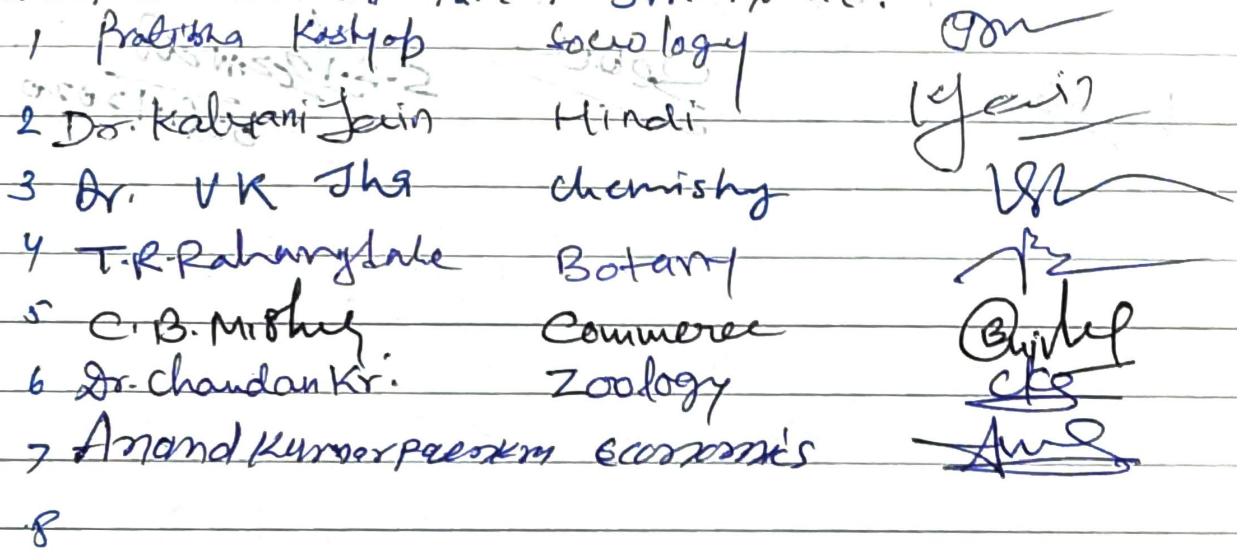 1 Pratibha Kashyap Sociology
2 Dr. Kalyani Jain Hindi
3 Dr. V K Jha Chemistry
4 T.R. Rahangdale Botany
5 C.B. Mishra Commerce
6 Dr. Chandan Kr. Zoology
7 Anand Kumar Economics
8